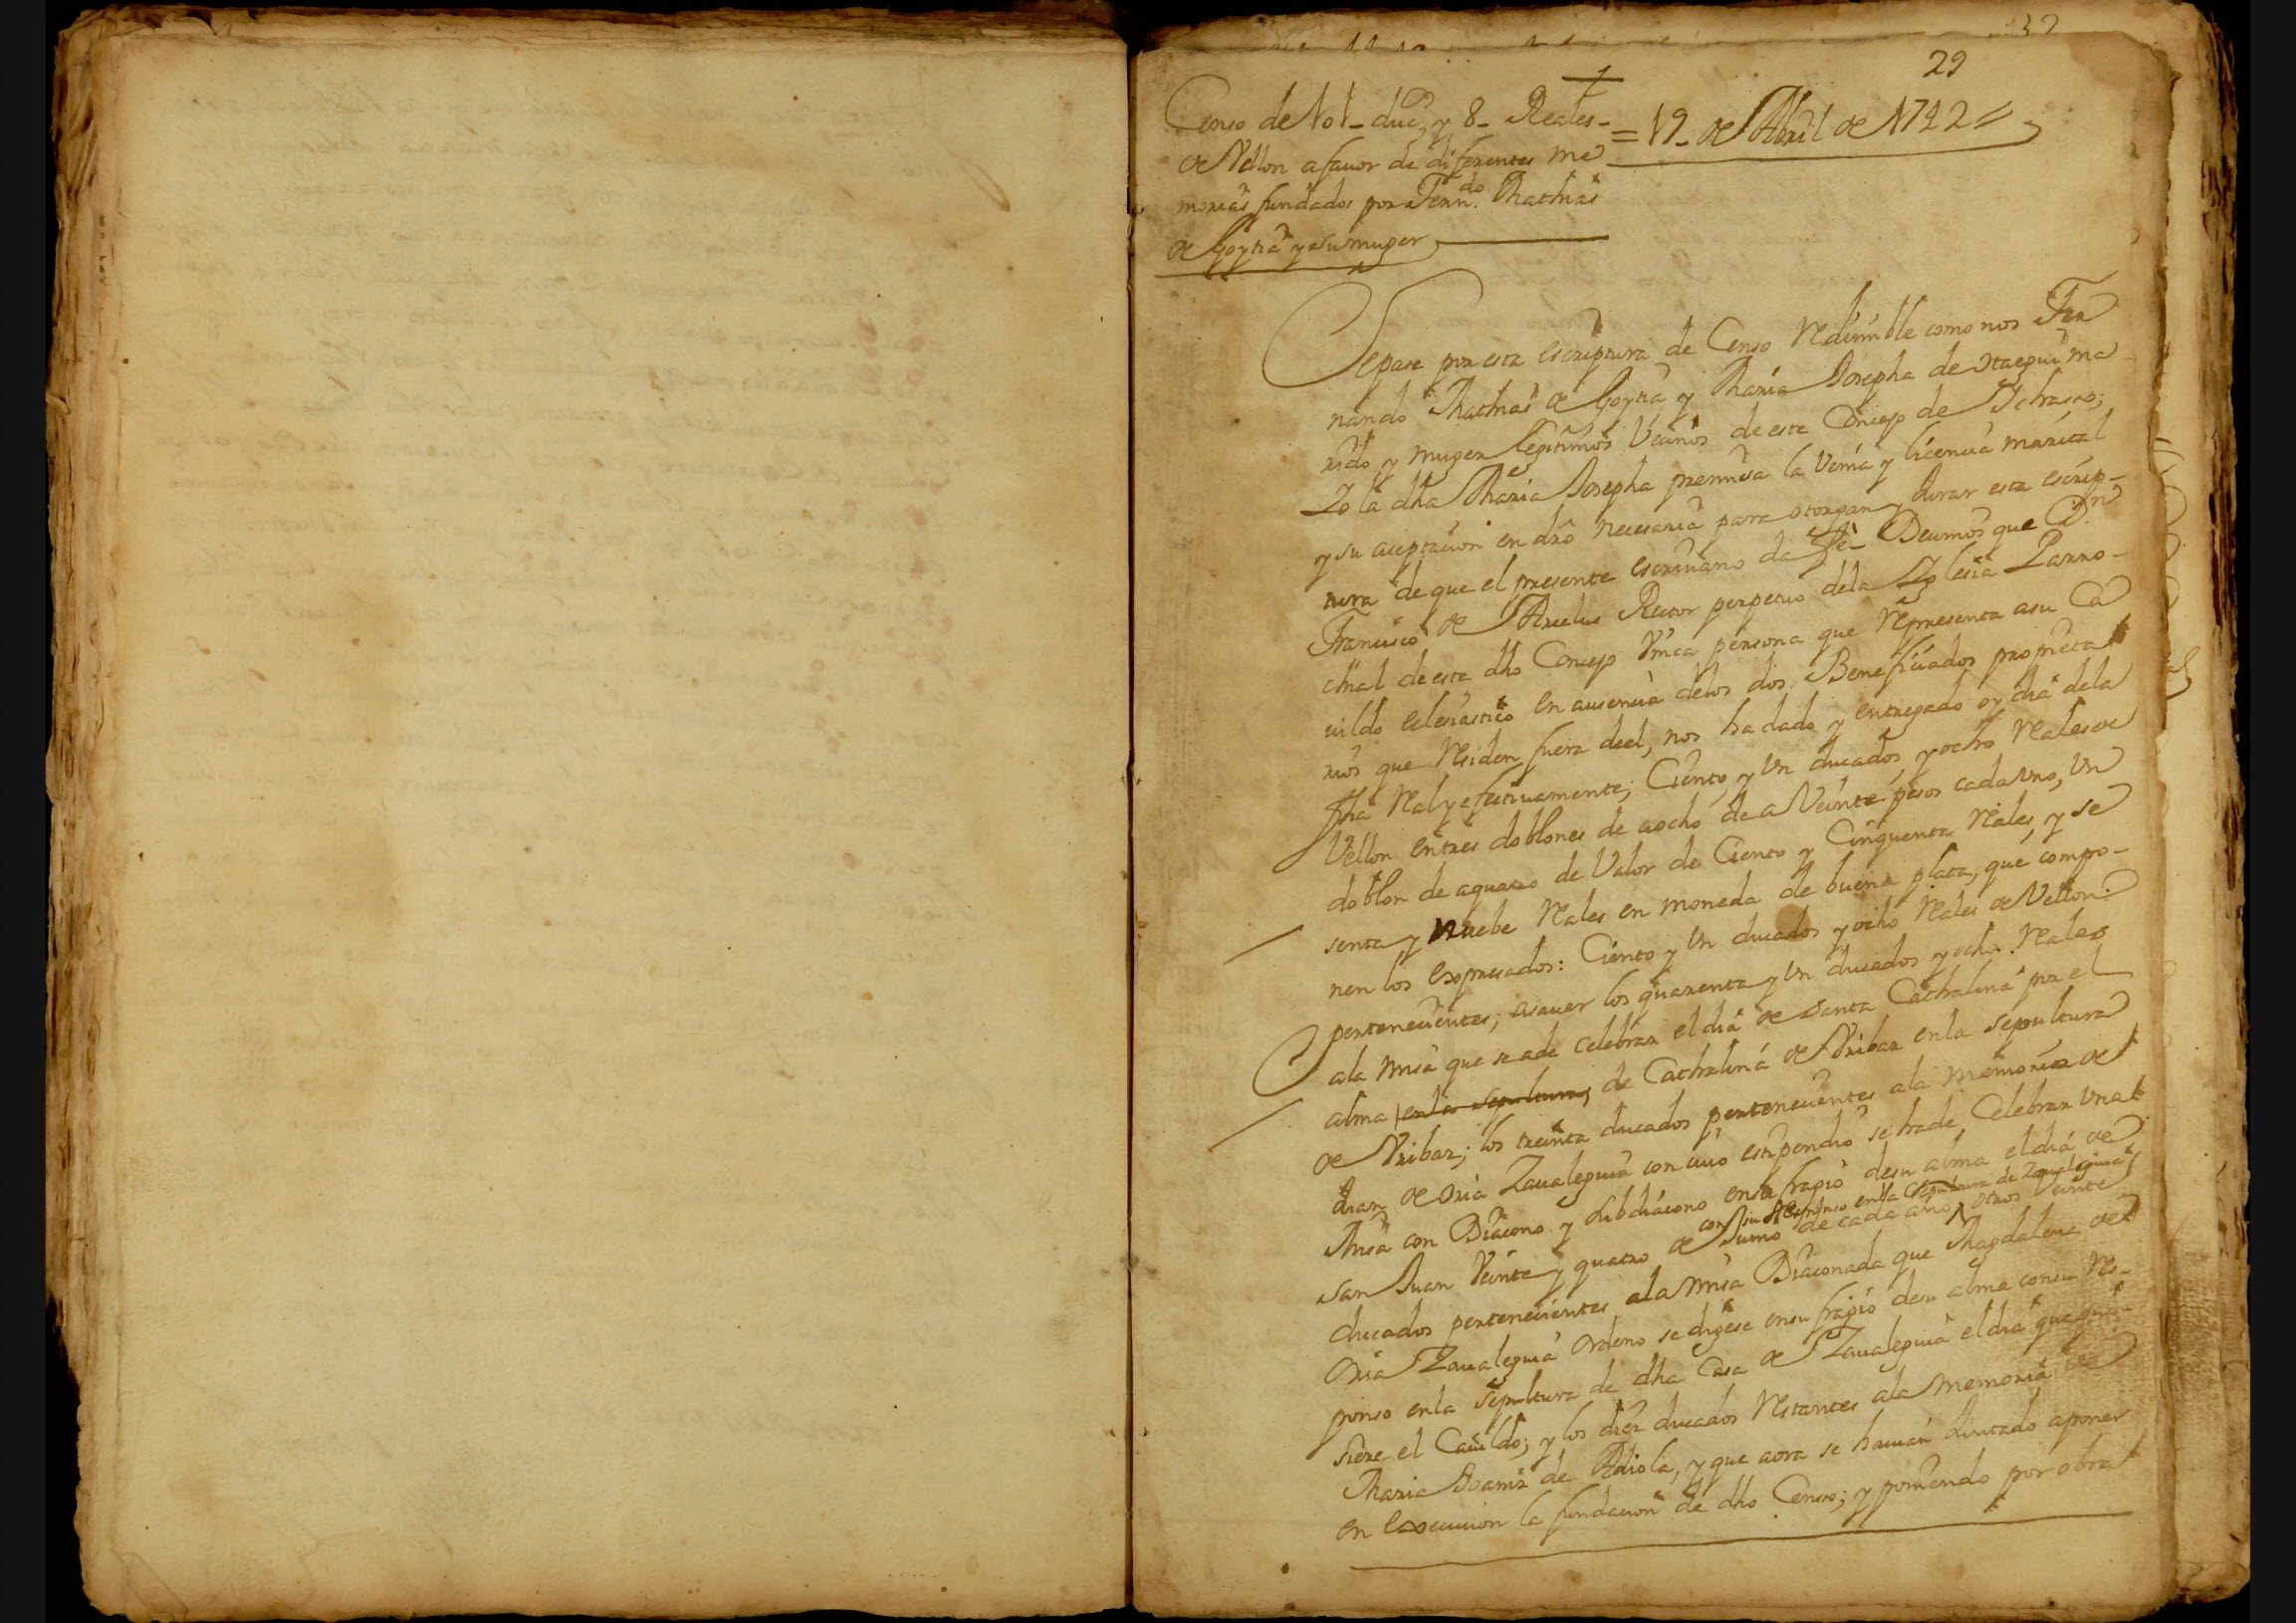 29
Censo de 101- duc.s y 8- Reales-
de Vellon a fauor de diferentes me
morias fundados por Fern.do Mathias
de Goytia y su muger
= 19- de Abril de 1742 =
Sepase por esta escriptura de Censo Redimible como nos Fer
nando Mathias de Goytia y Maria Josepha de Ytaegui ma
rido y muger legitimos Vecinos de este Concejo de Ychasso;
Yo la dha Maria Josepha premisa la Venia y licencia marital
y su aceptacion en dro necesaria para otorgar y Jurar esta escrip-
tura de que el presente escriuano da fè- Decimos que D.n
Francisco de Aruelus Rector perpetuo dela Yglesia Parro-
chial de este dho Concejo Vnica persona que Representa a su Ca
uildo eclesiastico en ausencia delos dos Beneficiados proprieta
rios que Residen fuera deel, nos ha dado y entregado oy dia dela
fha Real y efectiuamente; Ciento y Vn ducados y ocho Reales de
Vellon en tres doblones de a ocho de a Veinte pesos cada vno, Vn
doblon de aquatro de Valor de Ciento y Cinquenta Reales, y se
senta y nuebe Reales en moneda de buena plata, que compo-
nen los expresados: Ciento y Vn ducados y ocho Reales de Vellon:
pertenecientes; asauer los quarenta y Vn ducados y ocho Reales
ala misa que se ade celebrar el dia de Santa Cathalina por el
alma en la sepultura, de Cathalina de Vribar en la sepultura
de Vribar; los treinta ducados pertenecientes ala memoria de
Juan de Oria Zaualeguia con cuio estipendio se hade Celebrar Vna
Misa con Diacono y subdiacono en sufragio de su alma el dia de
con su Responso en la sepultura de Zaualeguia
San Juan Veinte y quatro de Junio de cada año, otros Veinte
ducados pertenecientes ala misa Diaconada que Magdalena de
Oria Zaualeguia ordeno se digese en sufragio de su alma con su Res-
ponso en la sepultura de dha Casa de Zaualeguia el dia que qui-
siere el Cauildo; y los diez ducados Restantes ala memoria de
Maria de y que aora se hauian Juntado aponer
en execucion la fundacion de dho Censo; y poniendo por obra